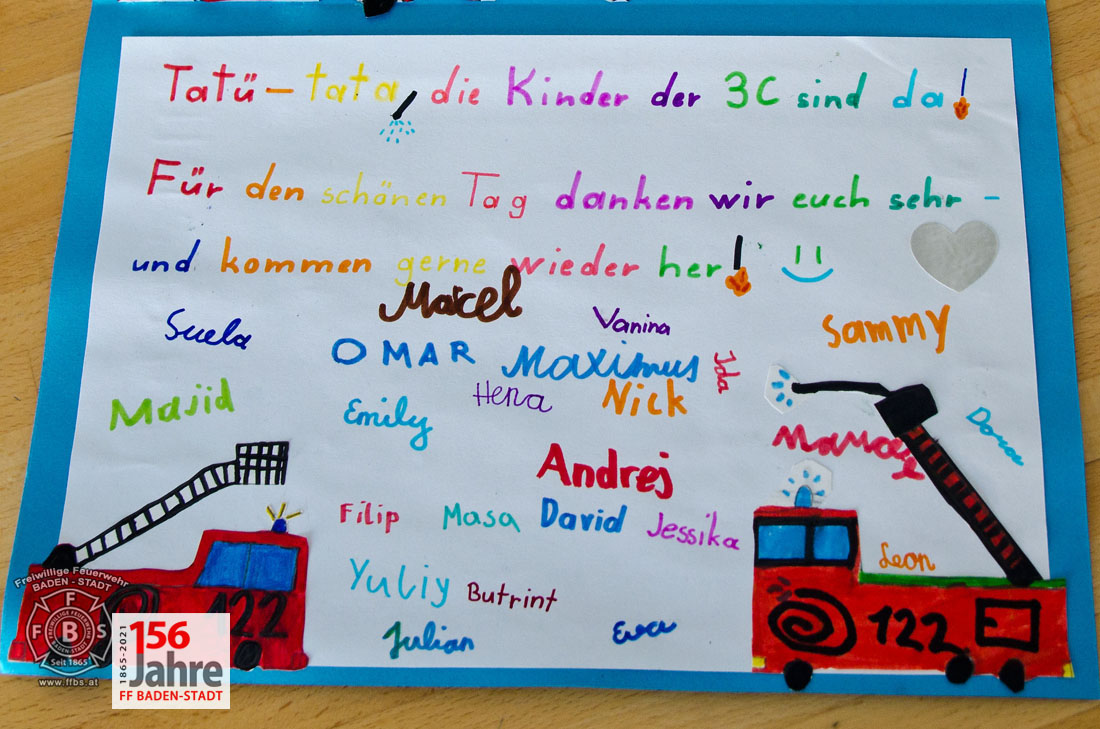 Tatü-tata, die Kinder der 3C sind da!
Für den schönen Tag danken wir euch sehr -
und kommen gerne wieder her!
Marcel
Suela
Vanina
Sammy
OMAR
Maximus
Ida
Majid
Emily
Hena
Nick
Dora
Andrej
Filip
Masa
David
Jessika
Leon
Yuliy
Butrint
Julian
Ewa
122
122
F
Freiwillige Feuerwehr
BADEN - STADT
F
F B S
FREIWILLIGE FEUERWEHR
BADEN-STADT
Seit 1865
www.ffbs.at
1865-2021
156
Jahre
FF BADEN-STADT